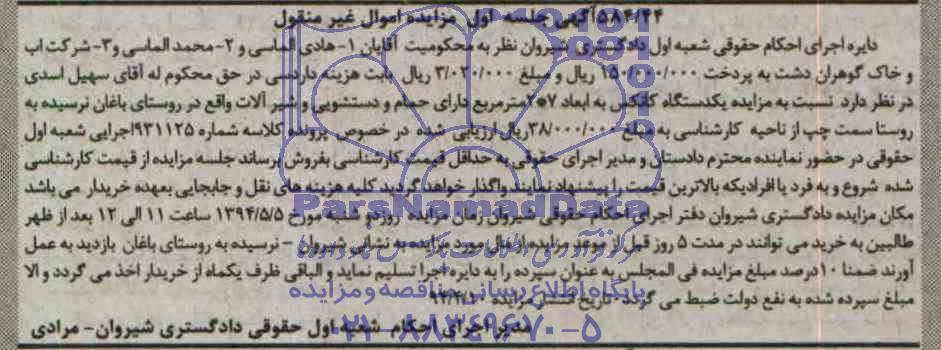 ۵۸۴/۴۴ آگهی جلسه اول مزایده اموال غیر منقول
دایره اجرای احکام حقوقی شعبه اول دادگستری شیروان نظر به محکومیت آقایان ۱-هادی الماسی و ۲-محمد الماسی و۳-شرکت اب
و خاک گوهران دشت به پردخت ۱۵۰/۰۰۰/۰۰۰ ریال و مبلغ ۳/۰۲۰/۰۰۰ ریال بابت هزینه دادرسی در حق محکوم له آقای سهیل اسدی
در نظر دارد نسبت به مزایده یکدستگاه کانکس به ابعاد ۷*۲مترمربع دارای حمام و دستشویی و شیر آلات واقع در روستای باغان نرسیده به
روستا سمت چپ از ناحیه کارشناسی به مبلغ ۳۸/۰۰۰/۰۰۰ریال ارزیابی شده در خصوص پرونده کلاسه شماره ۹۳۱۱۲۵اجرایی شعبه اول
حقوقی در حضور نماینده محترم دادستان و مدیر اجرای حقوقی به حداقل قیمت کارشناسی بفروش برساند جلسه مزایده از قیمت کارشناسی
شده شروع و به فرد یا افرادیکه بالاترین قیمت را پیشنهاد نمایند واگذار خواهد گردید کلیه هزینه های نقل و جابجایی بعهده خریدار می باشد
مکان مزایده دادگستری شیروان دفتر اجرای احکام حقوقی شیروان زمان مزایده روزدو شنبه مورخ ۱۳۹۴/۵/۵ ساعت ۱۱ الی ۱۲ بعد از ظهر
طالبین به خرید می توانند در مدت ۵ روز قبل از موعد مزایده از مال مورد مزایده به نشانی شیروان – نرسیده به روستای باغان بازدید به عمل
آورند ضمنا ۱۰درصد مبلغ مزایده فی المجلس به عنوان سپرده را به دایره اجرا تسلیم نماید و الباقی ظرف یکماه از خریدار اخذ می گردد و الا
مبلغ سپرده شده به نفع دولت ضبط می گردد تاریخ مزایده
مدیر اجرای احکام شعبه اول حقوقی دادگستری شیروان- مرادی
ParsNamadData
پایگاه اطلاع رسانی مناقصه و مزایده
۰۲۱-۸۸۳۴۹۶۷۰-۵